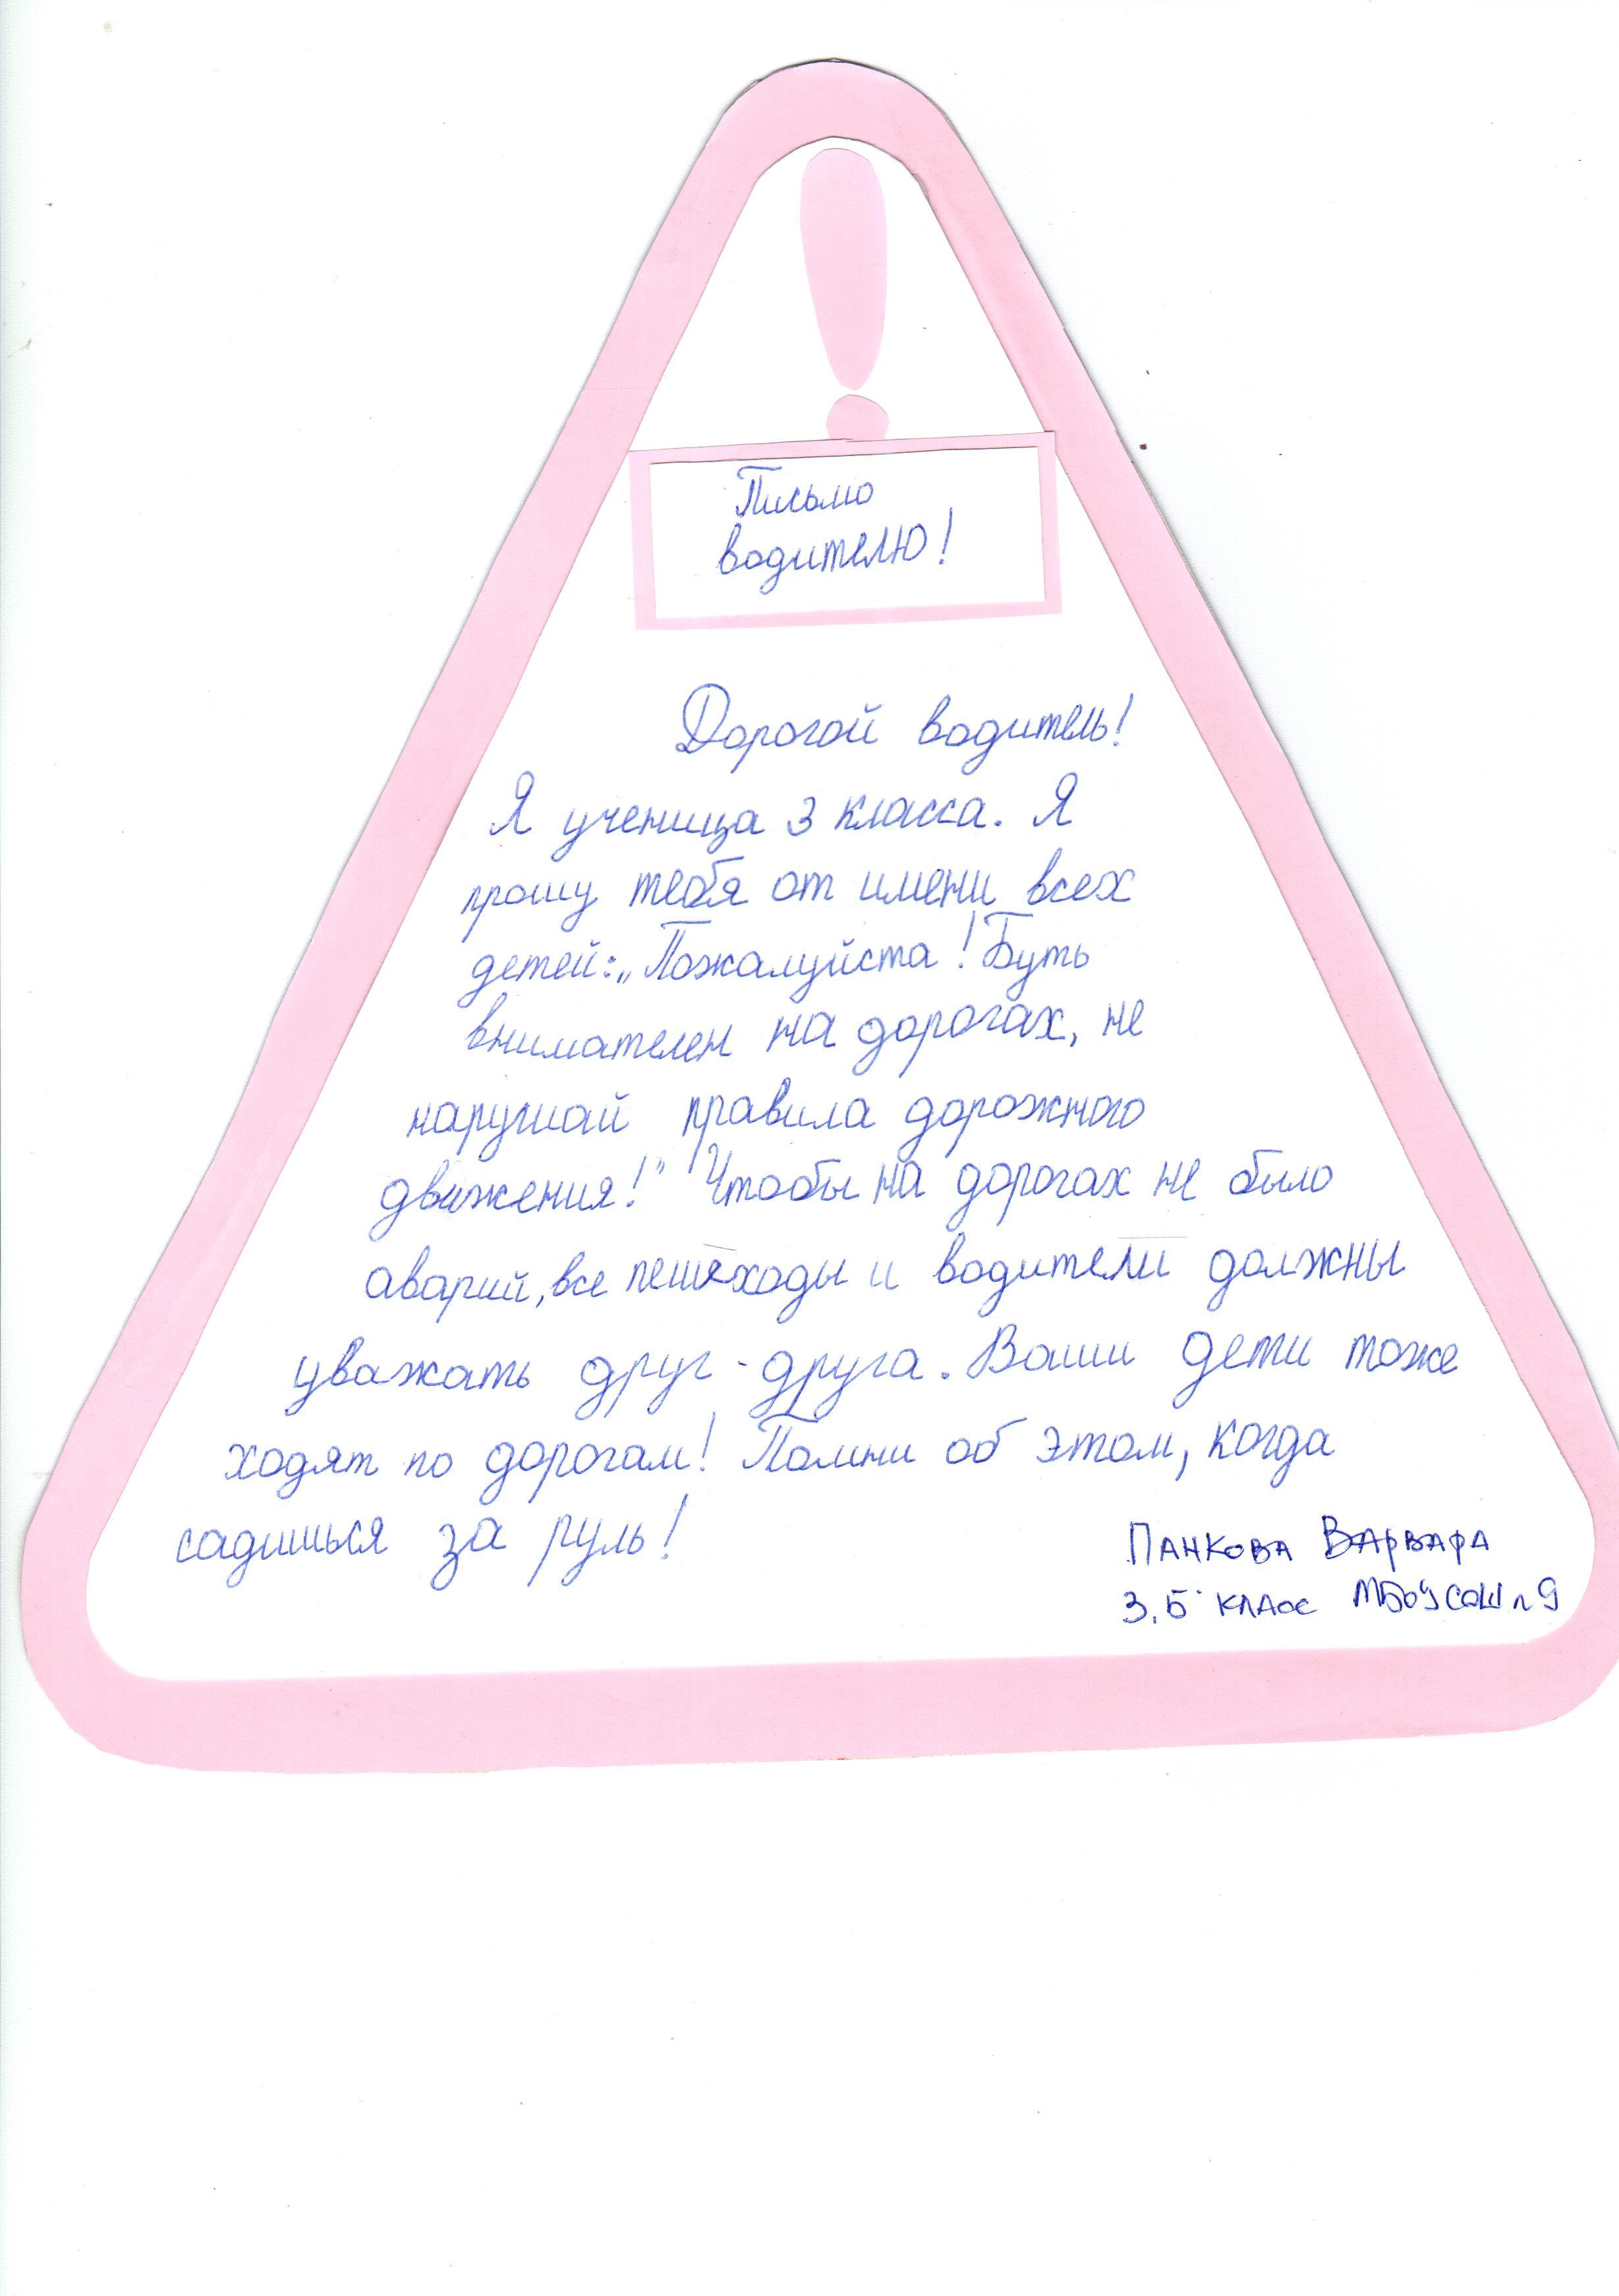 Письмо
водителю!
Дорогой водитель!
Я ученица 3 класса. Я
прошу тебя от имени всех
детей: „Пожалуйста! Буть
внимателен на дорогах, не
нарушай правила дорожного
движения!" Чтобы на дорогах не было
аварий, все пешеходы и водители должны
уважать друг-друга. Ваши дети тоже
ходят по дорогам! Помни об этом, когда
садишься за руль!
Панкова Варвара
3 „Б" класс МБОУСОШ n 9